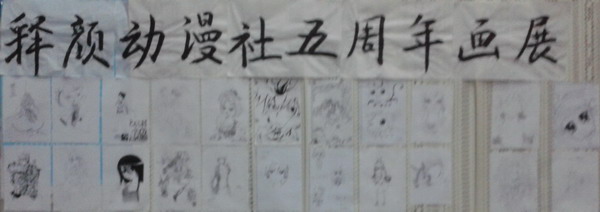 释颜动漫社五周年画展